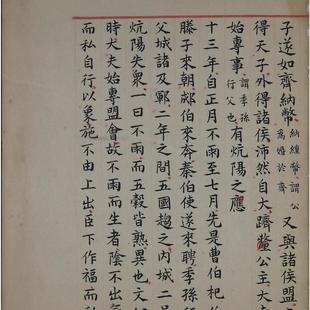 子遂如齊納幣納纁幣謂公爲婚於齊又與諸侯盟
得天子外得諸侯沛然自大躋釐公主大夫
始專事謂季孫行父也有炕陽之應
十三年自正月不雨至七月先是曹伯杞伯
滕子來朝郕伯來奔秦伯使遂來聘季孫行
父城諸及鄆二年之間五國趨之内城二邑
炕陽失衆一曰不雨而五穀皆熟異也文公
時大夫始專盟會故不雨而生者陰不出氣
而私自行以象施不由上出臣下作福而私